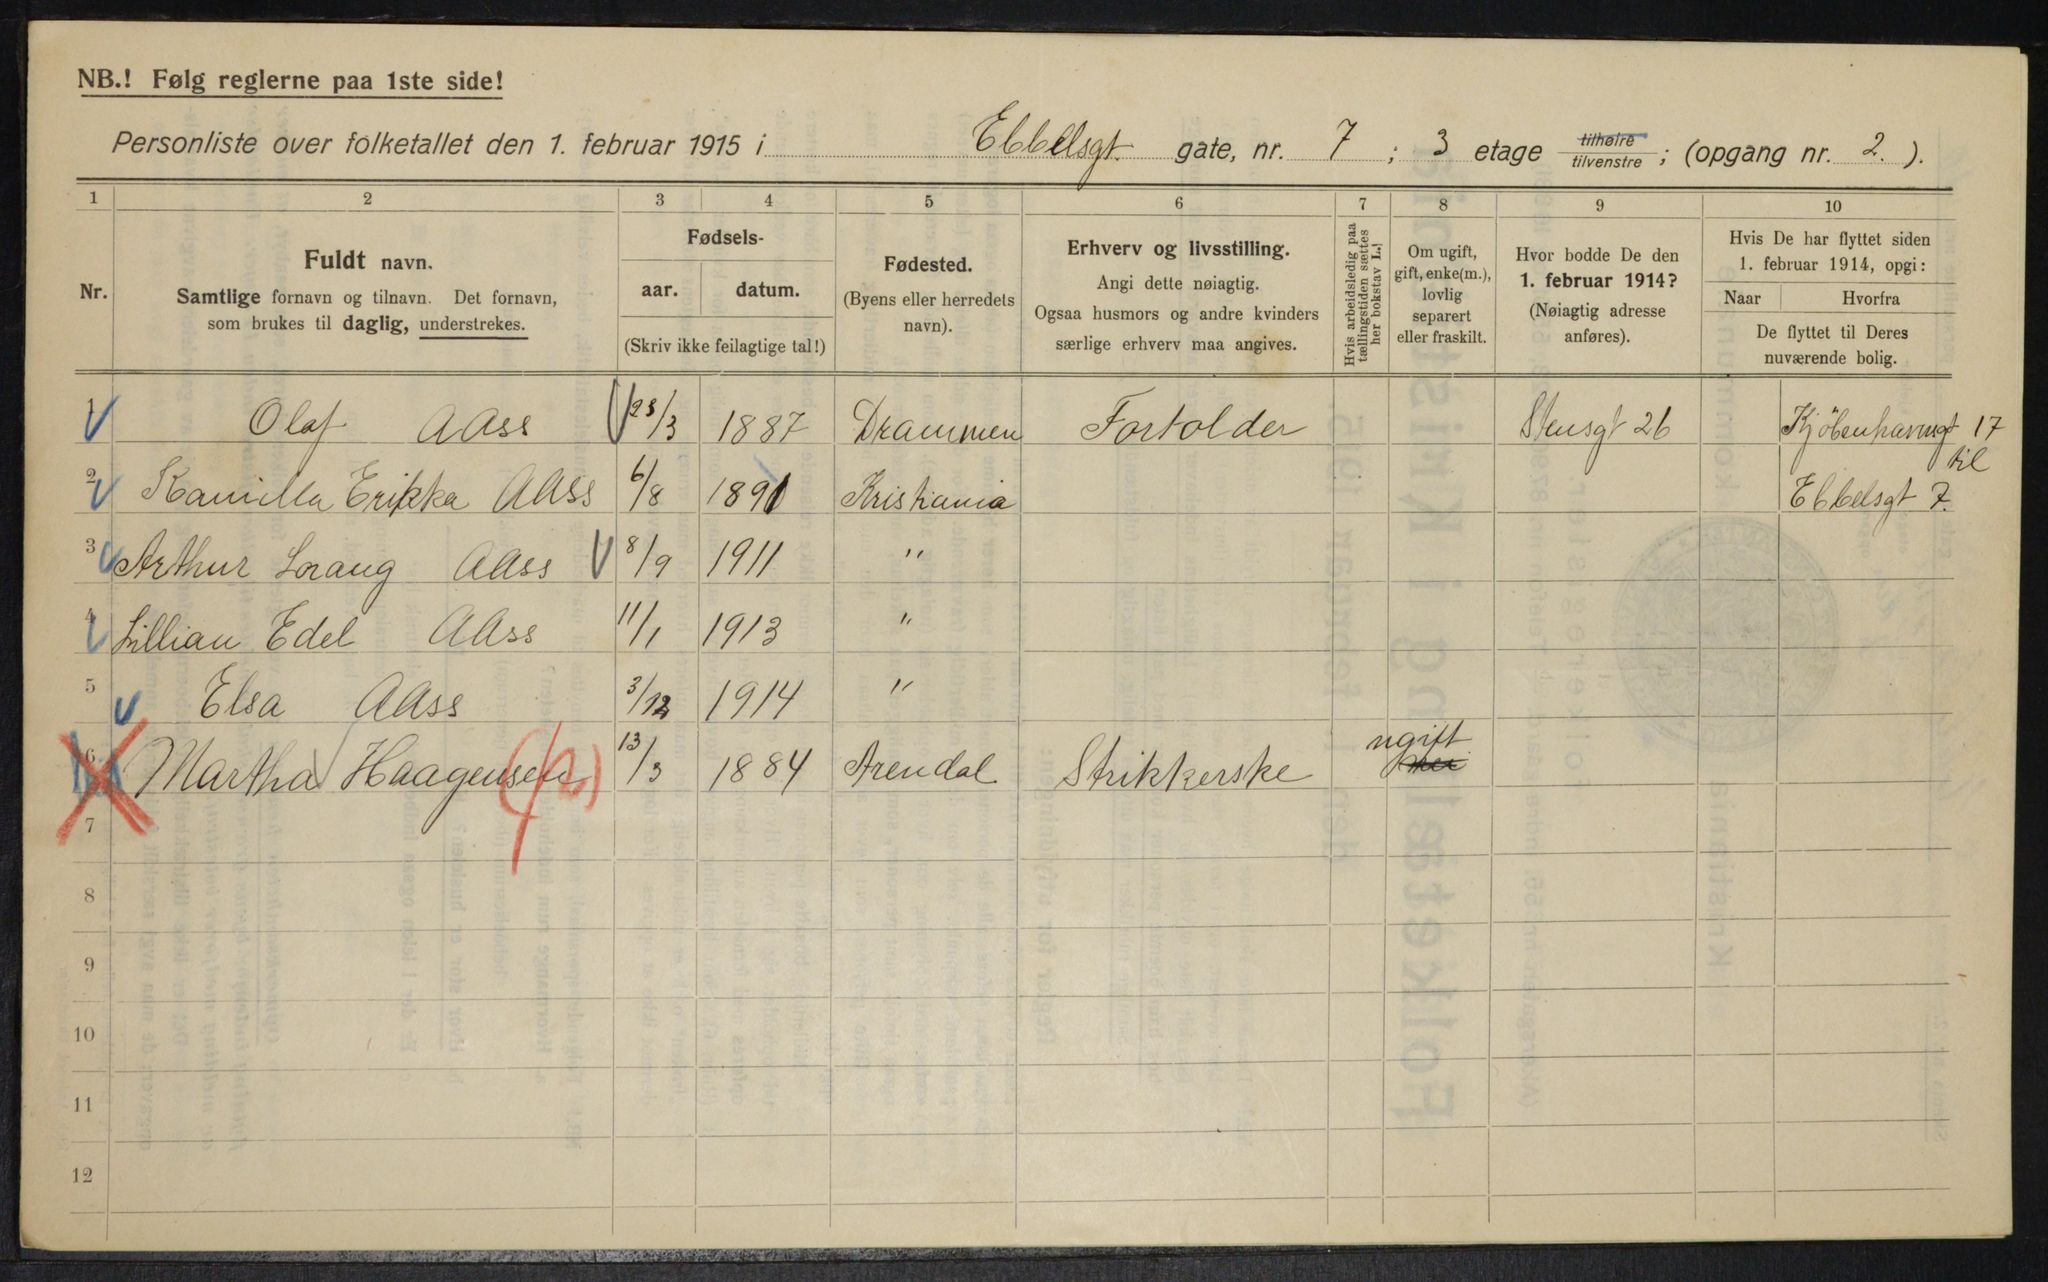 NB.! Følg reglerne paa 1ste side!
Personliste over folketallet den 1. februar 1915 i Ebbelsgt. gate, nr. 7 ; 3 etage tilhøire tilvenstre ; (opgang nr. 2. ).
1 2 3 4 5 6 7 8 9 10
Nr.
Fuldt navn.
Samtlige fornavn og tilnavn. Det fornavn,
som brukes til daglig, understrekes.
Fødsels-
aar. datum.
(Skriv ikke feilagtige tal!)
Fødested.
(Byens eller herredets
navn).
Erhverv og livsstilling.
Angi dette nøiagtig.
Ogsaa husmors og andre kvinders
særlige erhverv maa angives.
Hvis arbeidsledig paa
tællingstiden sættes
her bokstav L.!
Om ugift,
gift, enke(m.),
lovlig
separert
eller fraskilt.
Hvor bodde De den
1. februar 1914?
(Nøiagtig adresse
anføres).
Hvis De har flyttet siden
1. februar 1914, opgi:
Naar Hvorfra
De flyttet til Deres
nuværende bolig.
1 Olaf Aass 23/3 1887 Drammen Fortolder Stensgt 26 Kjöbenhavnsgt 17
til
2 Kamilla Erikka Aass 6/8 1891 Kristiania Ebbelsgt 7.
3 Arthur Lorang Aass 8/9 1911 "
4 Lillian Edel Aass 11/1 1913 "
5 Elsa Aass 3/12 1914 "
6 Martha Haagensen 13/3 1884 Arendal Strikkerske ugift
7
8
9
10
11
12